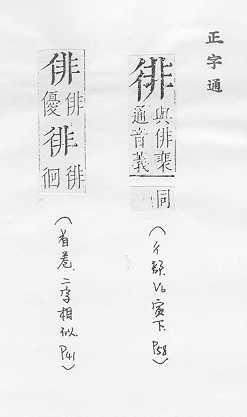 正字通
徘
與俳裴
通音義
同
(彳部. V6 寅下. P58)
俳
俳
優
徘
徘
徊
(首卷. 二字相似. P41)